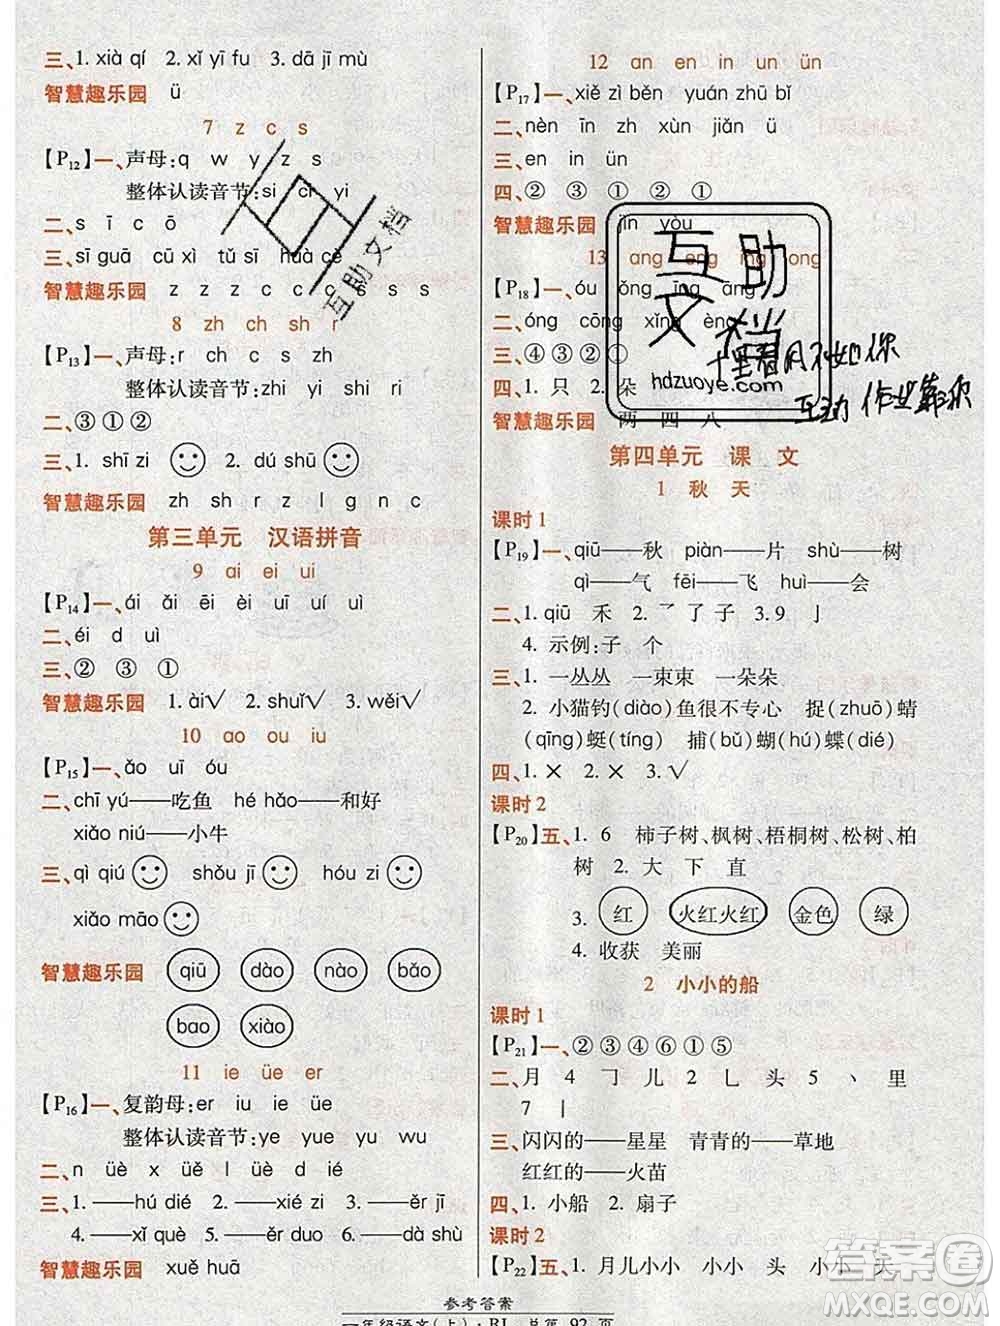 三、1. xià qí  2. xǐ yī fu  3. dā jī mù
智慧趣乐园  ü
7  z  c  s
【P12】一、声母:q  w  y  z  s
整体认读音节:si  ci  yi
二、s  ī  c  ō
三、sī guā  cū xì  tǔ sī  huà cè
智慧趣乐园  z  z  z  c  c  c  s  s  s
8  zh  ch  sh  r
【P13】一、声母:r  ch  c  s  zh
整体认读音节:zhi  yi  shi  ri
二、③①②
三、1. shī zi  2. dú shū
智慧趣乐园  zh  sh  r  z  l  g  n  c
第三单元  汉语拼音
9  ai  ei  ui
【P14】一、ái  ǎi  ēi  èi  uī  uí  uì
二、éi  d  uì
三、②  ③  ①
智慧趣乐园  1. ài√  2. shuǐ√  3. wèi√
10  ao  ou  iu
【P15】一、ǎo  uī  óu
二、chī yú——吃鱼  hé hǎo——和好
xiǎo niú——小牛
三、qì qiú  shǒu jī  hóu zi
xiǎo māo
智慧趣乐园  qiū  dào  nào  bǎo
bao  xiào
11  ie  üe  er
【P16】一、复韵母:er  iu  ie  üe
整体认读音节:ye  yue  yu  wu
二、n  üè  x  üě  l  üè  d  ié
三、1. ——hú dié  2. ——xié zi  3. ——ěr jī
4. ——xǐ què  5. ——yuè liang  6. ——dà shù
智慧趣乐园  xuě huā
12  an  en  in  un  ün
【P17】一、xiě zì běn  yuán zhū bǐ
二、nèn  īn  zh  xùn  jiǎn  ü
三、en  in  ün
四、②  ③  ①  ②  ①
智慧趣乐园  jīn  yòu
13  ang  eng  ing  ong
【P18】一、óu  ǒng  īng  āng
二、óng  cōng  xǐng  èng
三、④③①②①
四、1. 只  2. 朵
智慧趣乐园  两  四  八
第四单元  课  文
1  秋  天
课时1
【P19】一、qiū——秋  piàn——片  shù——树
qì——气  fēi——飞  huì——会
二、1. qiū  禾  2. 乛  了  子  3. 9  亅
4. 示例:子  个
三、1. 一丛丛  一束束  一朵朵
2. 小猫钓(diào)鱼很不专心  捉(zhuō)蜻
(qīng)蜓(tíng)  捕(bǔ)蝴(hú)蝶(dié)
四、1. ×  2. ×  3. √
课时2
【P20】五、1. 6  柿子树、枫树、梧桐树、松树、柏
树  2. 大  下  直
3. 红  火红火红  金色  绿
4. 收获  美丽
2  小小的船
课时1
【P21】一、②③④⑥①⑤
二、月  4  ㇆  儿  2  乚  头  5  丶  里
7  丨
三、闪闪的——星星  青青的——草地
红红的——火苗
四、1. 小船  2. 扇子
课时2
【P22】五、1. 月儿小小  小小  头  小小  天
参考答案
一年级语文(上)·RJ  总第  92  页
互助文档
互助文档
hdzuoye.com
答案圈
MXQE.COM